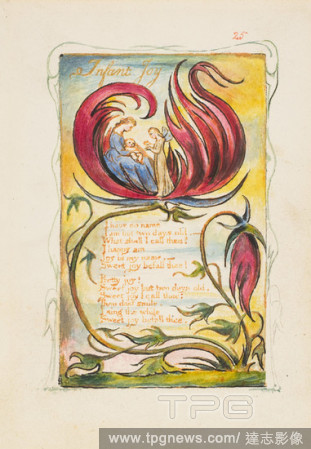 25
Infant Joy
I have no name
I am but two days old.
What shall I call thee?
I happy am
Joy is my name,
Sweet joy befall thee!
Pretty joy!
Sweet joy but two days old,
Sweet joy I call thee:
Thou dost smile.
I sing the while
Sweet joy befall thee.
TPG
www.tpgnews.com/達志影像